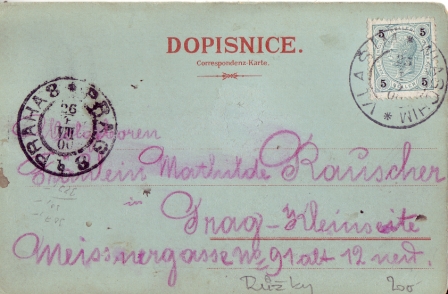 DOPISNICE.
Correspondenz-Karte.
5 5
5 5
VLAŠIM * WLASCHIM
PRAG 3 * PRAHA 3
26
VIII
00
Wohlgeboren
Fräulein Mathilde Rauscher
in
Prag-Kleinseite
Meissnergasse No 91 alt 12 neu.
Růžky 200